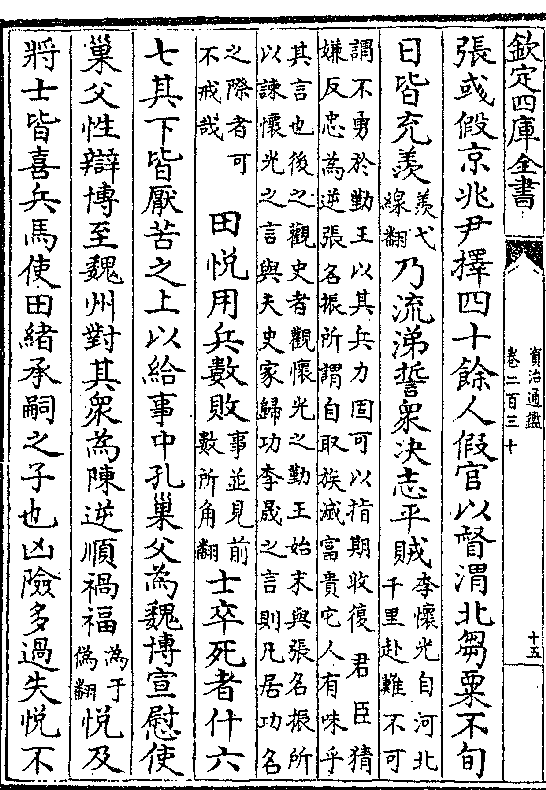 欽定四庫全書
資治通鑑
卷二百三十
十五
張彧假京兆尹擇四十餘人假官以督渭北芻粟不旬
日皆充羨羨弋線翻乃流涕誓衆决志平賊李懷光自河北千里赴難不可
謂不勇於勤王以其兵力固可以指期收復君臣猜
嫌反忠為逆張名振所謂自取族滅富貴它人有味乎
其言也後之觀史者觀懷光之勤王始末與張名振所
以諫懷光之言與夫史家歸功李晟之言則凡居功名
之際者可不戒哉田悦用兵數敗事並見前數所角翻士卒死者什六
七其下皆厭苦之上以給事中孔巢父為魏博宣慰使
巢父性辯博至魏州對其衆為陳逆順禍福為于偽翻悦及
將士皆喜兵馬使田緒承嗣之子也凶險多過失悦不